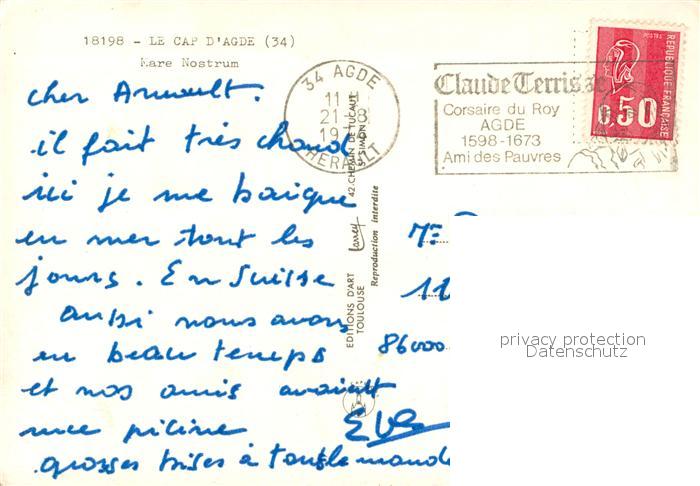 18198 - LE CAP D'AGDE (34)
Mare Nostrum
cher Arnault.
il fait très chaud
ici je me baigne
en mer tout les
jours. En Suisse
aussi nous avons
eu beau temps
et nos amis avaient
une picine
Eve
grosses bises à tout le monde
34 AGDE
11
21 - 8
19
HERAULT
EDITIONS D'ART
Larrey
TOULOUSE
42, CHEMIN DE TUCAUT
St SIMON
Reproduction interdite
Claude Terrisse
Corsaire du Roy
AGDE
1598-1673
Ami des Pauvres
POSTES
REPUBLIQUE FRANÇAISE
0,50
Mr
11
86000
privacy protection
Datenschutz